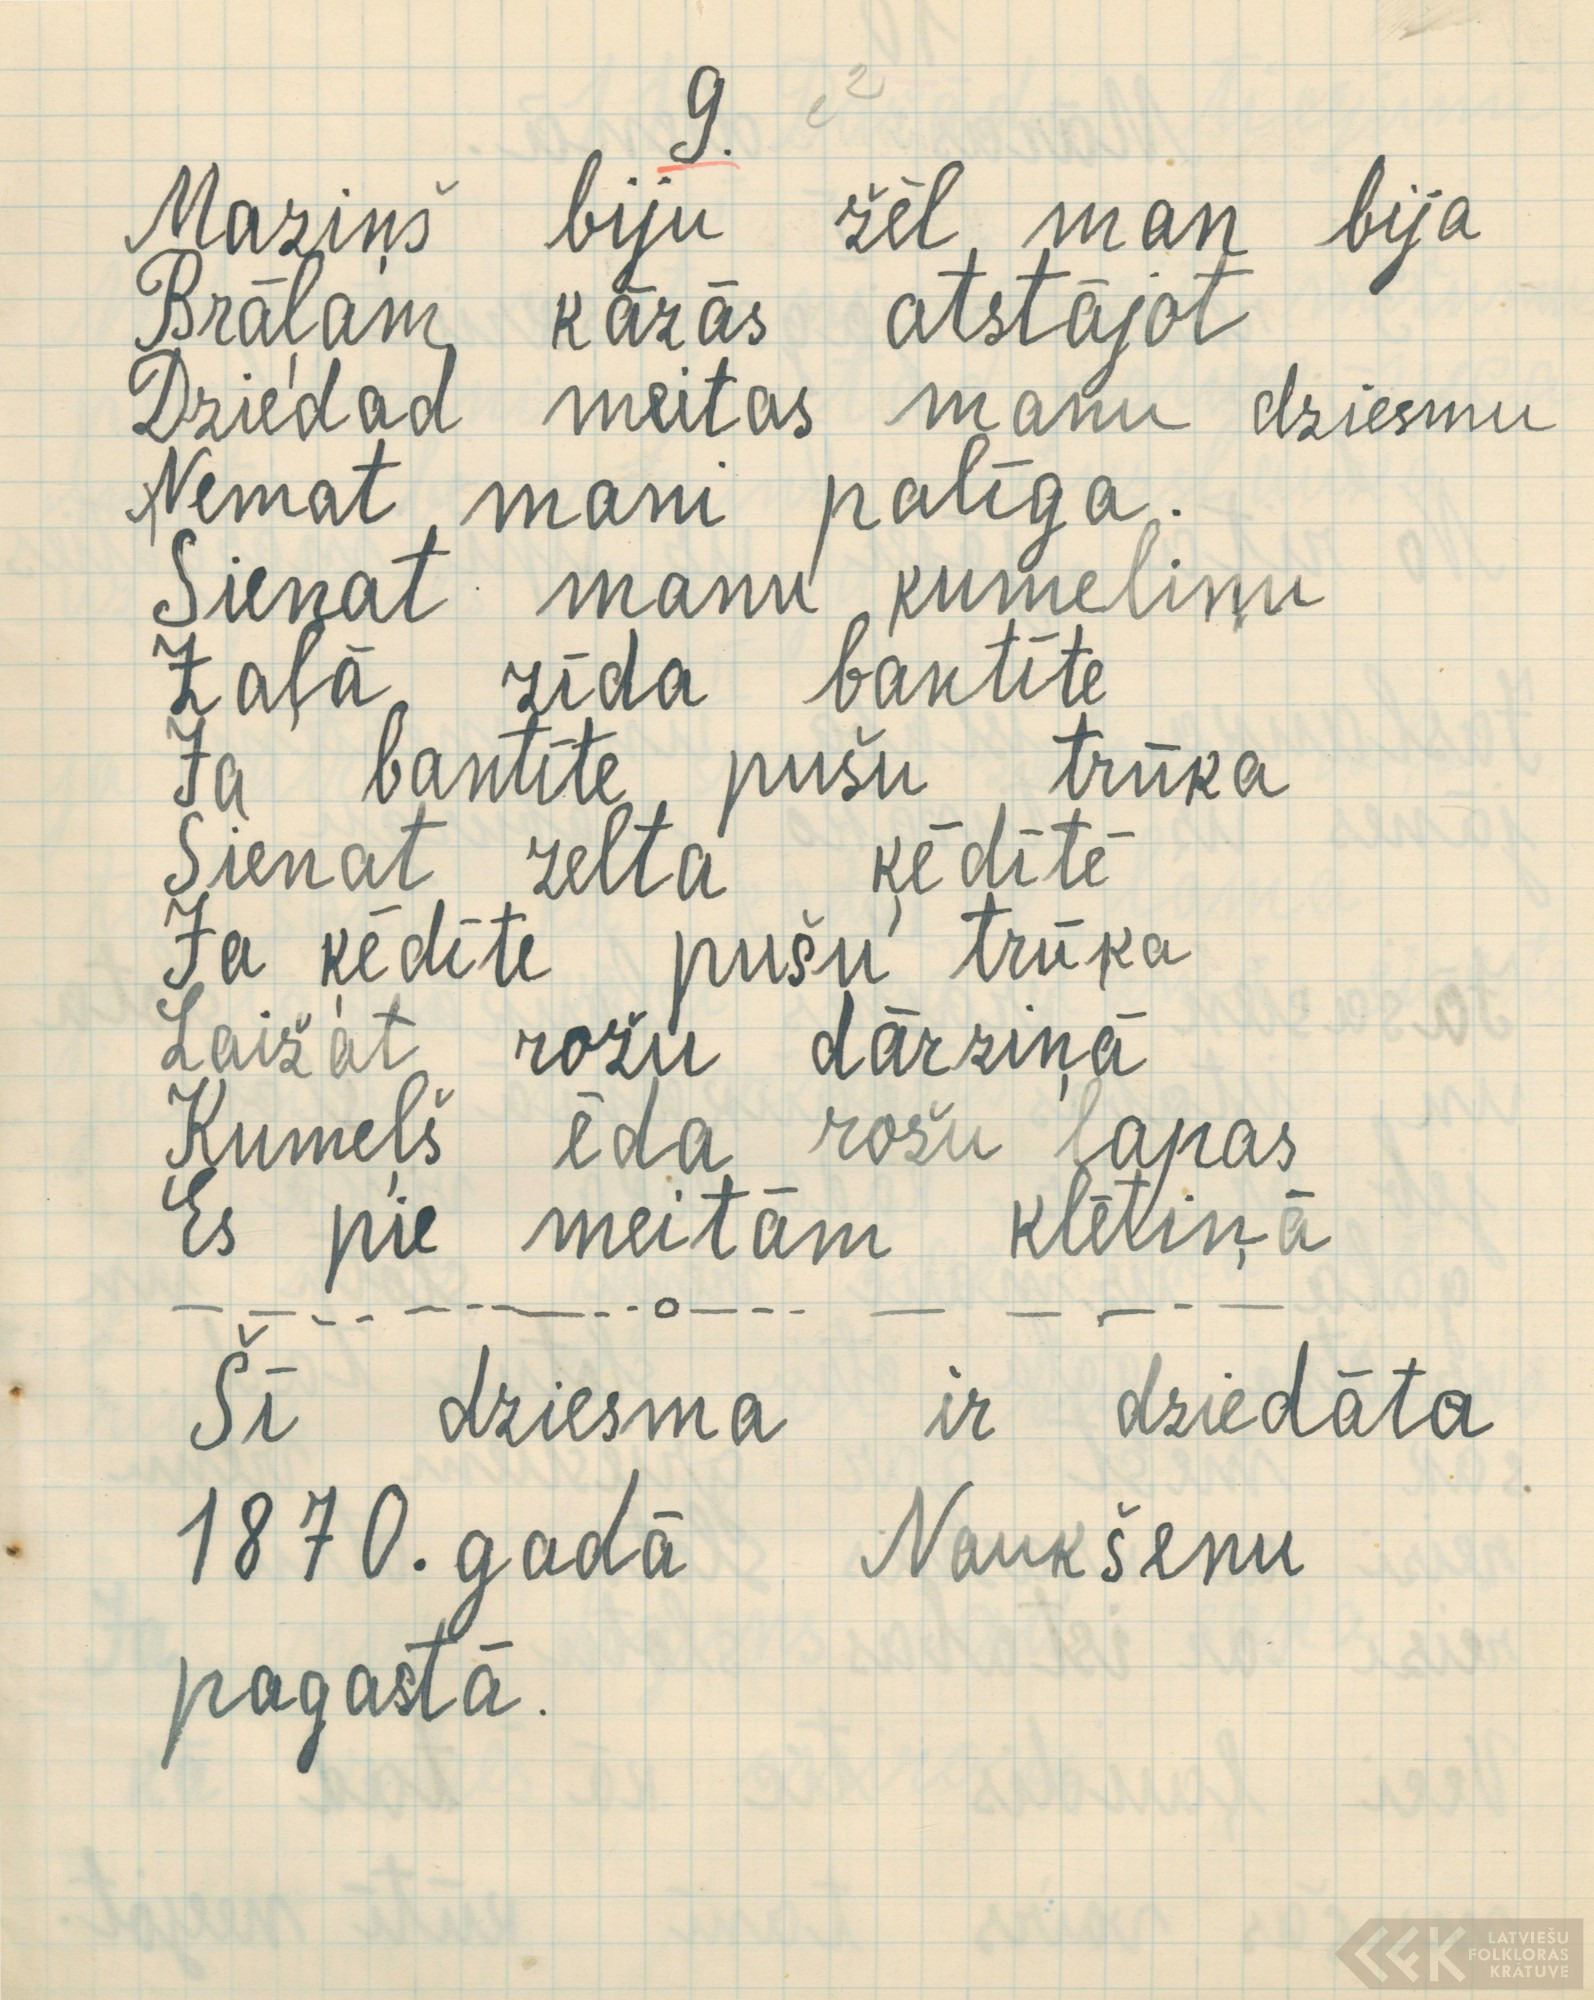 9.
Maziņš biju žēl man bija
Brāļam kāzās atstājot
Dziedad meitas manu dziesmu
Nemat mani palīga.
Sienat manu kumeliņu
Zaļā zīda bantīte
Ja bantīte pušu trūka
Sienat zelta ķēdītē
Ja ķēdīte pušu trūka
Laižat rožu dārziņā
Kumeļš ēda rošu lapas
Es pie meitām klētiņā
Šī dziesma ir dziedāta
1870. gadā Naukšenu
pagastā.
LATVIEŠU
FOLKLORAS
KRĀTUVE